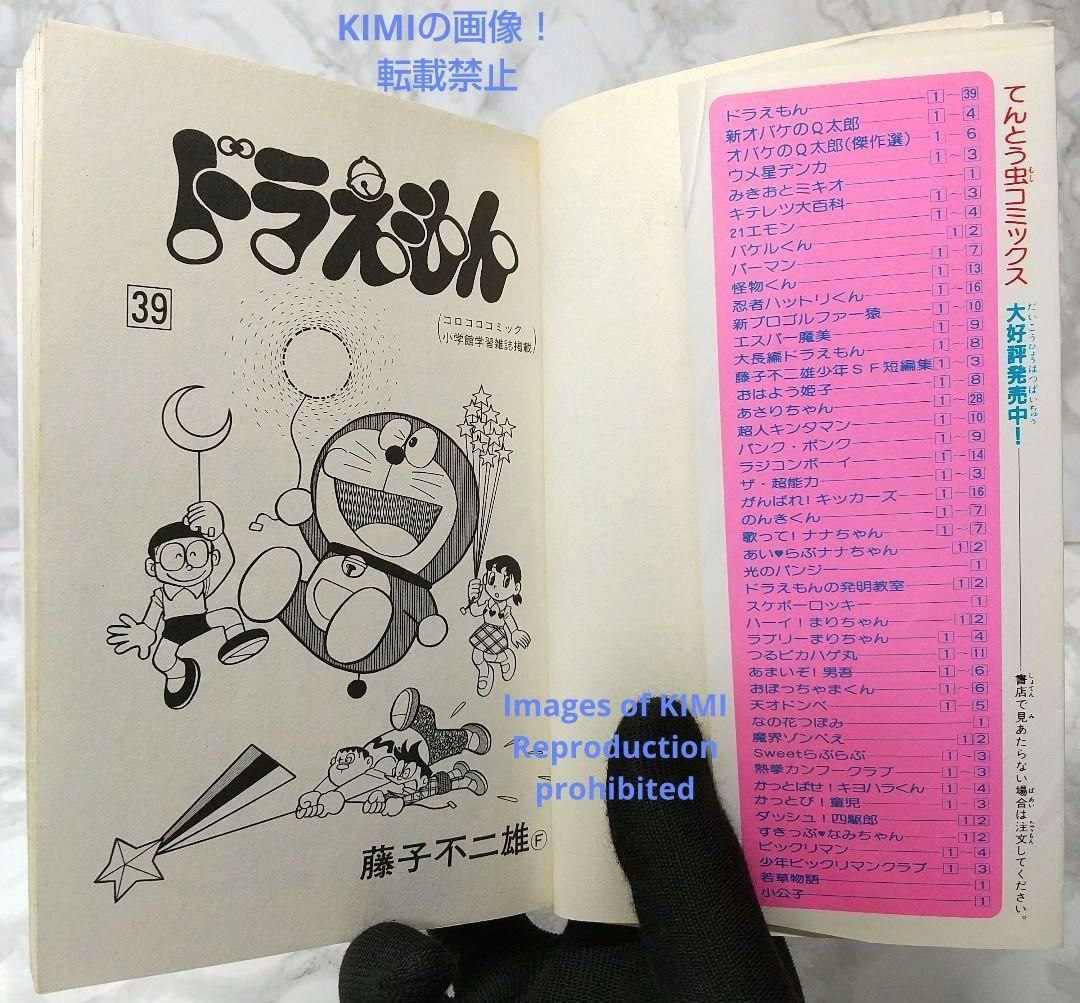 KIMIの画像！
転載禁止
ドラえもん
39
コロコロコミック
小学館学習雑誌掲載
藤子不二雄Ⓕ
Images of KIMI
Reproduction
prohibited
てんとう虫コミックス
むし
大好評発売中！
だいこうひょうはつばいちゅう
書店で見あたらない場合は注文してください。
しょてん み ばあい ちゅうもん
ドラえもん 1～39
新オバケのQ太郎 1～4
オバケのQ太郎(傑作選) 1～6
ウメ星デンカ 1～3
みきおとミキオ 1
キテレツ大百科 1～3
21エモン 1～4
バケルくん 1 2
パーマン 1～7
怪物くん 1～13
忍者ハットリくん 1～16
新プロゴルファー猿 1～10
エスパー魔美 1～9
大長編ドラえもん 1～8
藤子不二雄少年SF短編集 1～3
おはよう姫子 1～8
あさりちゃん 1～28
超人キンタマン 1～10
パンク・ポンク 1～9
ラジコンボーイ 1～14
ザ・超能力 1～3
がんばれ！キッカーズ 1～16
のんきくん 1～7
歌って！ナナちゃん 1～7
あい♥らぶナナちゃん 1 2
光のパンジー 1
ドラえもんの発明教室 1 2
スケボーロッキー 1
ハーイ！まりちゃん 1 2
ラブリーまりちゃん 1～4
つるピカハゲ丸 1～11
あまいぞ！男吾 1～6
おぼっちゃまくん 1～6
天才ドンベ 1～5
なの花つぼみ 1
魔界ゾンべえ 1 2
Sweetらぶらぶ 1～3
熱拳カンフークラブ 1～3
かっとばせ！キヨハラくん 1～4
かっとび！童児 1～3
ダッシュ！四駆郎 1 2
すきっぷ♥なみちゃん 1 2
ビックリマン 1～4
少年ビックリマンクラブ 1～3
若草物語 1
小公子 1